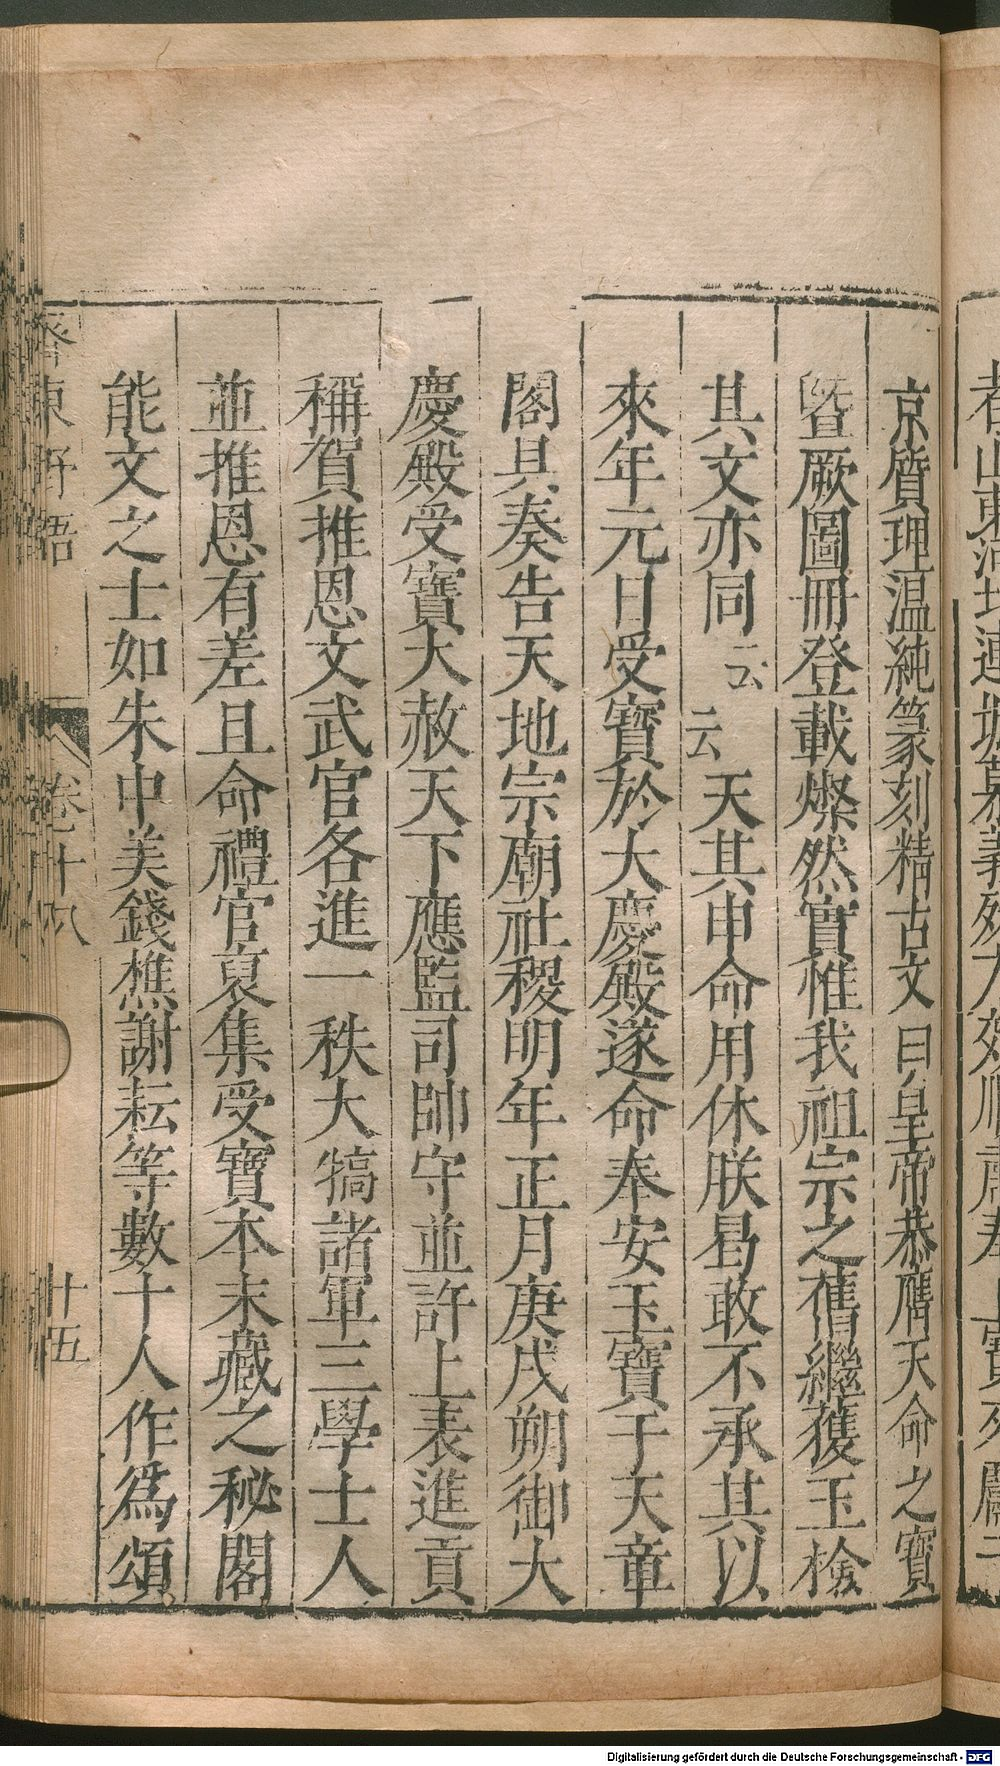 京質理温純篆刻精古文曰皇帝恭膺天命之寶
暨厥圖冊登載燦然實惟我祖宗之舊繼獲玉檢
其文亦同云云天其申命用休朕曷敢不承其以
來年元日受寶於大慶殿遂命奉安玉寶于天章
閣具奏告天地宗廟社稷明年正月庚戌朔御大
慶殿受寶大赦天下應監司帥守並許上表進貢
稱賀推恩文武官各進一秩大犒諸軍三學士人
並推恩有差且命禮官裒集受寶本末藏之秘閣
能文之士如朱中美錢樵謝耘等數十人作爲頌
齊東野語
卷十八
十五
Digitalisierung gefördert durch die Deutsche Forschungsgemeinschaft - DFG